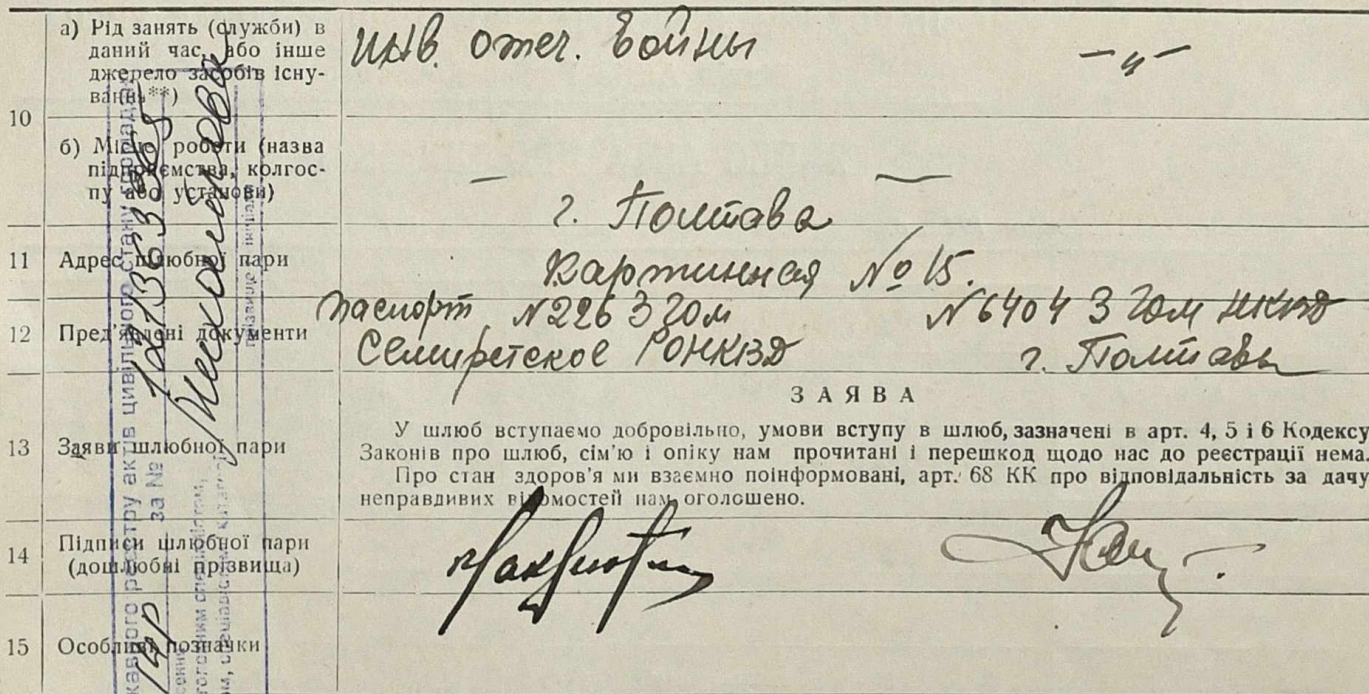 а) Рід занять (служби) в
даний час, або інше
джерело засобів існу-
вання**)
инв. отеч. войны
—"—
10
б) Місце роботи (назва
підприємства, колгос-
пу або установи)
— —
г. Полтава
11 Адрес шлюбної пари
Картинная № 15.
12 Пред'явлені документи
Паспорт №226 3 гом №6404 3 гом НКВД
РОНКВД г. Полтавы
13 Заяви шлюбної пари
ЗАЯВА
У шлюб вступаємо добровільно, умови вступу в шлюб, зазначені в арт. 4, 5 і 6 Кодексу
Законів про шлюб, сім'ю і опіку нам прочитані і перешкод щодо нас до реєстрації нема.
Про стан здоров'я ми взаємно поінформовані, арт. 68 КК про відповідальність за дачу
неправдивих відомостей нам оголошено.
14 Підписи шлюбної пари
(дошлюбні прізвища)
15 Особливі позначки
реєстру актів цивільного стану
за №